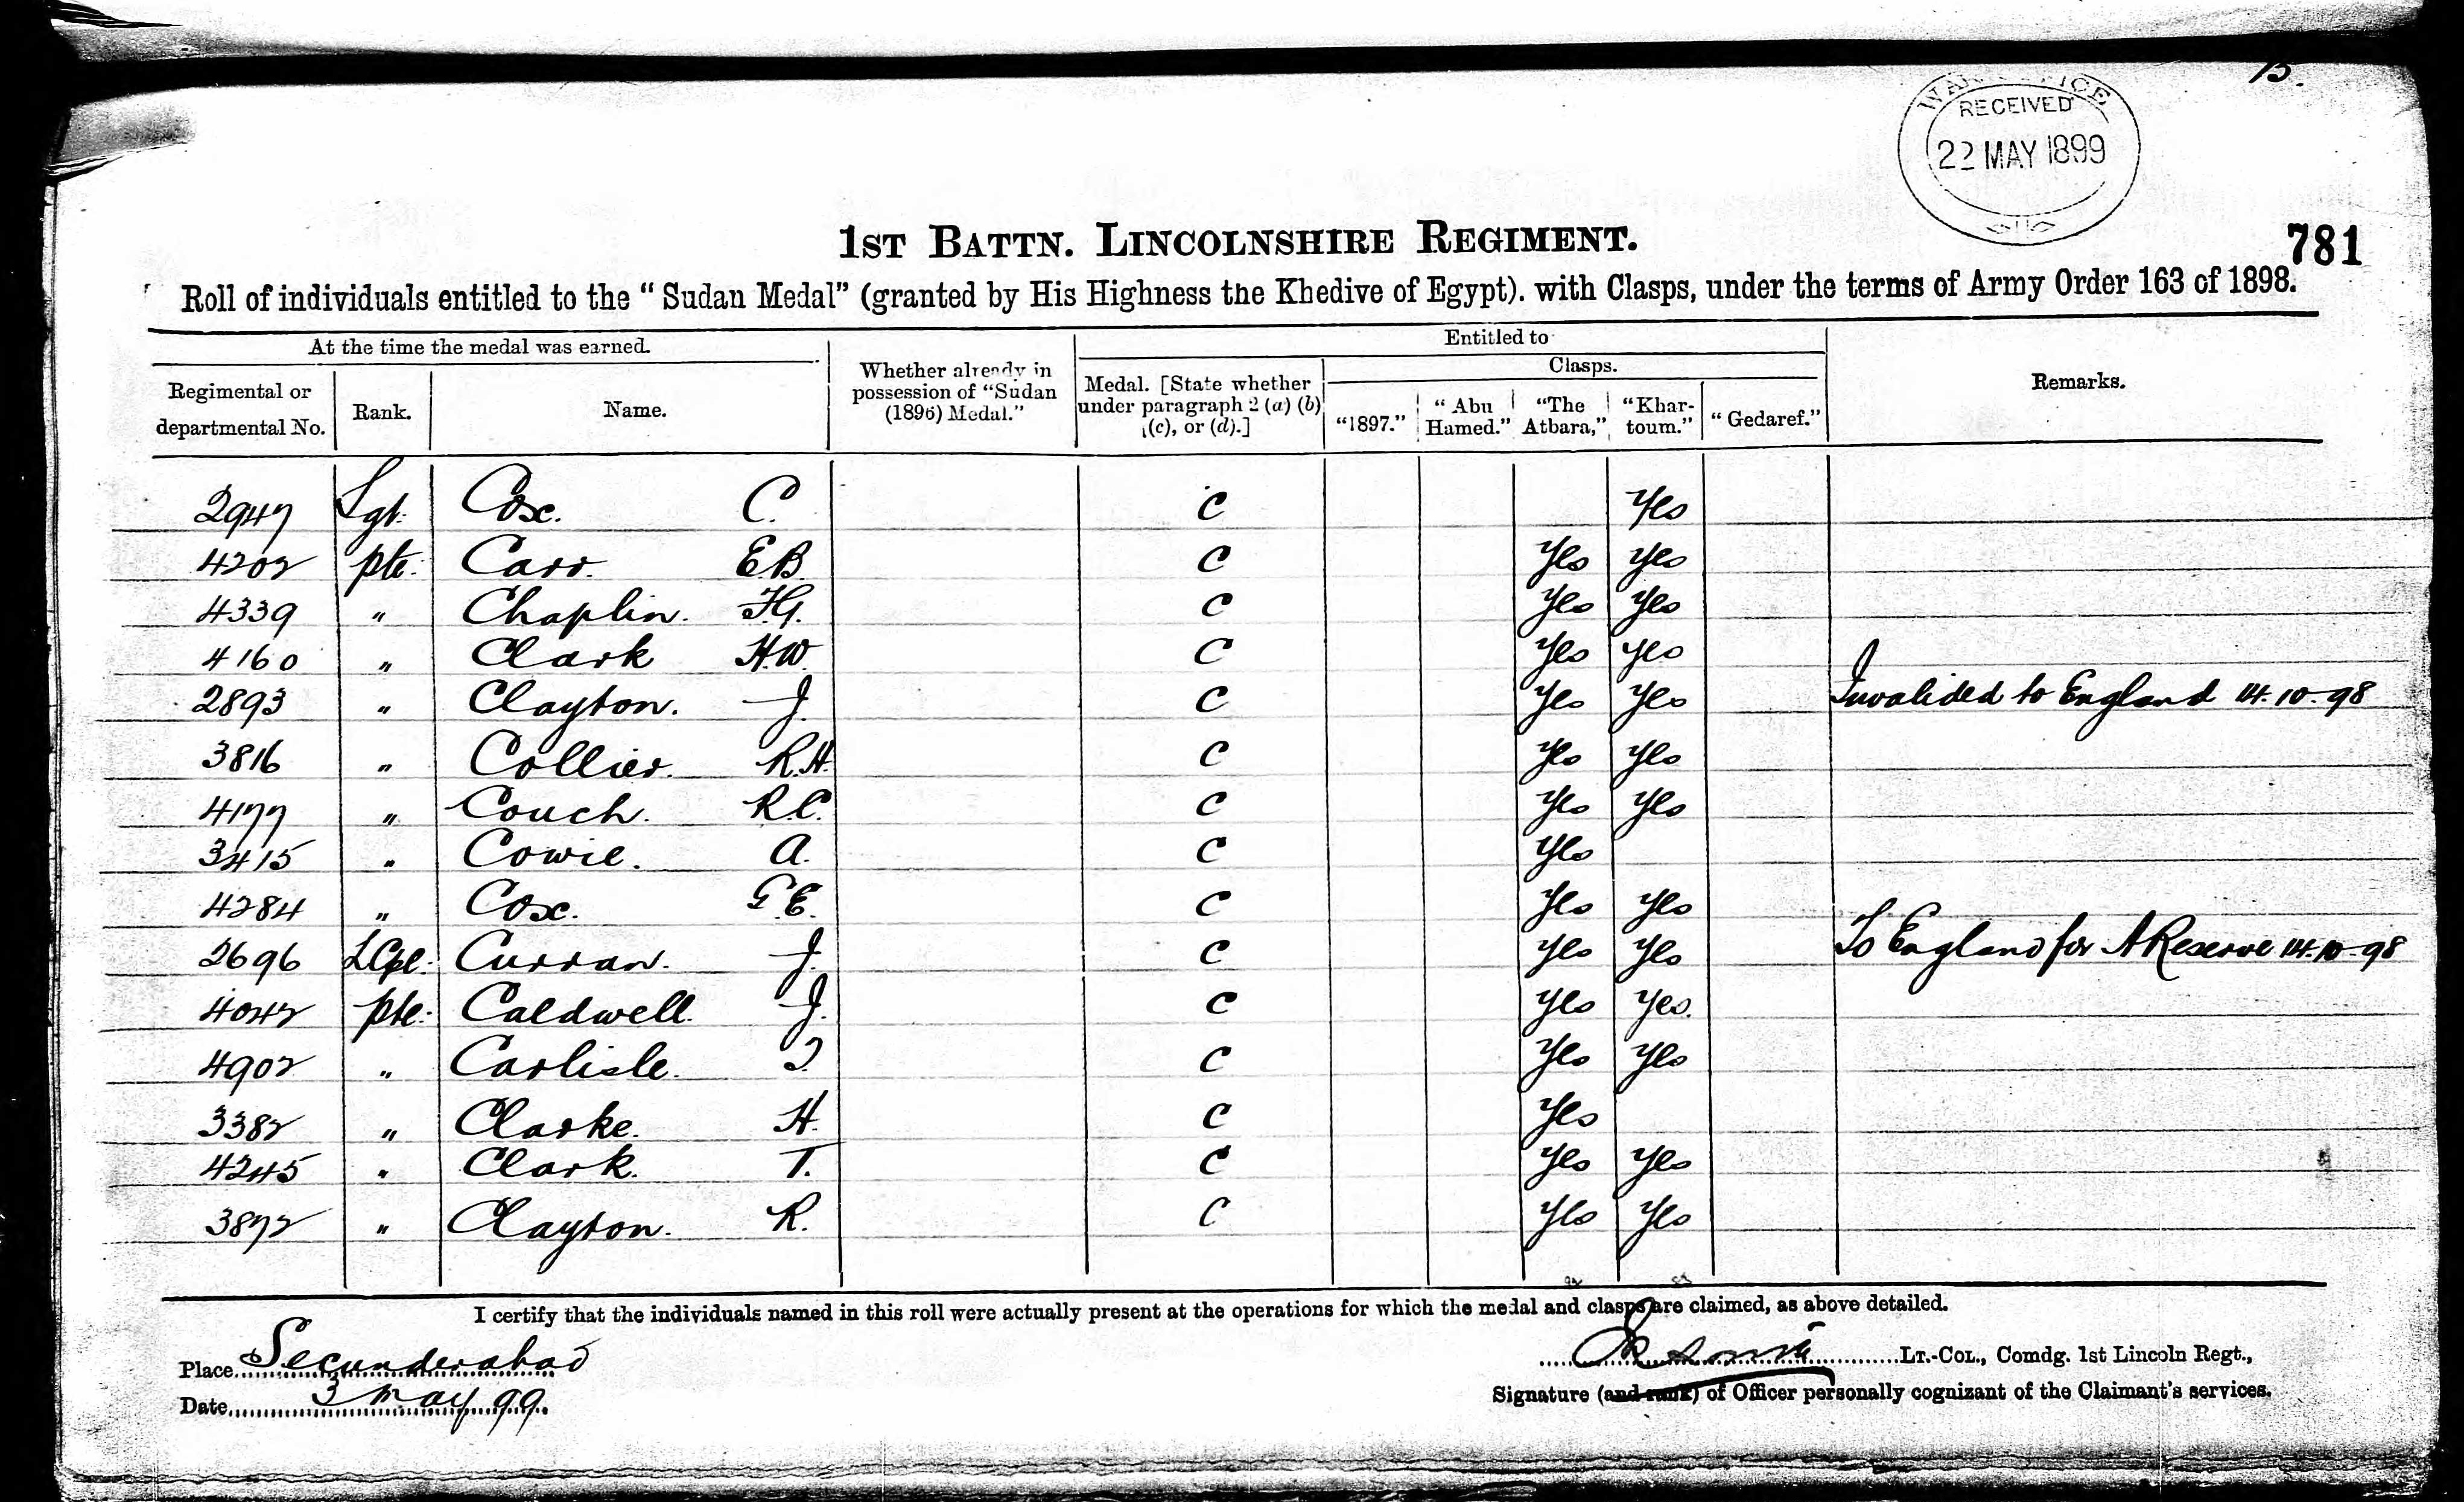 15.
WAR OFFICE
RECEIVED
22 MAY 1899
1ST BATTN. LINCOLNSHIRE REGIMENT.
781
Roll of individuals entitled to the “Sudan Medal” (granted by His Highness the Khedive of Egypt). with Clasps, under the terms of Army Order 163 of 1898.
At the time the medal was earned.
Regimental or departmental No.
Rank.
Name.
Whether already in possession of “Sudan (1896) Medal.”
Entitled to
Medal. [State whether under paragraph 2 (a) (b) (c), or (d).]
Clasps.
“1897.” “Abu Hamed.” “The Atbara,” “Khar-toum.” “Gedaref.”
Remarks.
2947 Sgt. Cox. C. C Yes
4202 pte. Carr. E.B. C Yes Yes
4339 " Chaplin. F.G. C Yes Yes
4160 " Clark H.W. C Yes Yes
2893 " Clayton. J. C Yes Yes Invalided to England 14.10.98
3816 " Collier. R.H. C Yes Yes
4177 " Couch. R.C. C Yes Yes
3415 " Cowie. A. C Yes
4284 " Cox. G.E. C Yes Yes
2696 LCpl. Curran. J. C Yes Yes To England for A Reserve 14.10.98
4042 pte. Caldwell. J. C Yes Yes.
4902 " Carlisle. J. C Yes Yes
3382 " Clarke. H. C Yes
4245 " Clark. T. C Yes Yes
3872 " Clayton. R. C Yes Yes
I certify that the individuals named in this roll were actually present at the operations for which the medal and clasps are claimed, as above detailed.
Place Secunderabad
Date 3 May 99
LT.-COL., Comdg. 1st Lincoln Regt.,
Signature (and rank) of Officer personally cognizant of the Claimant's services.